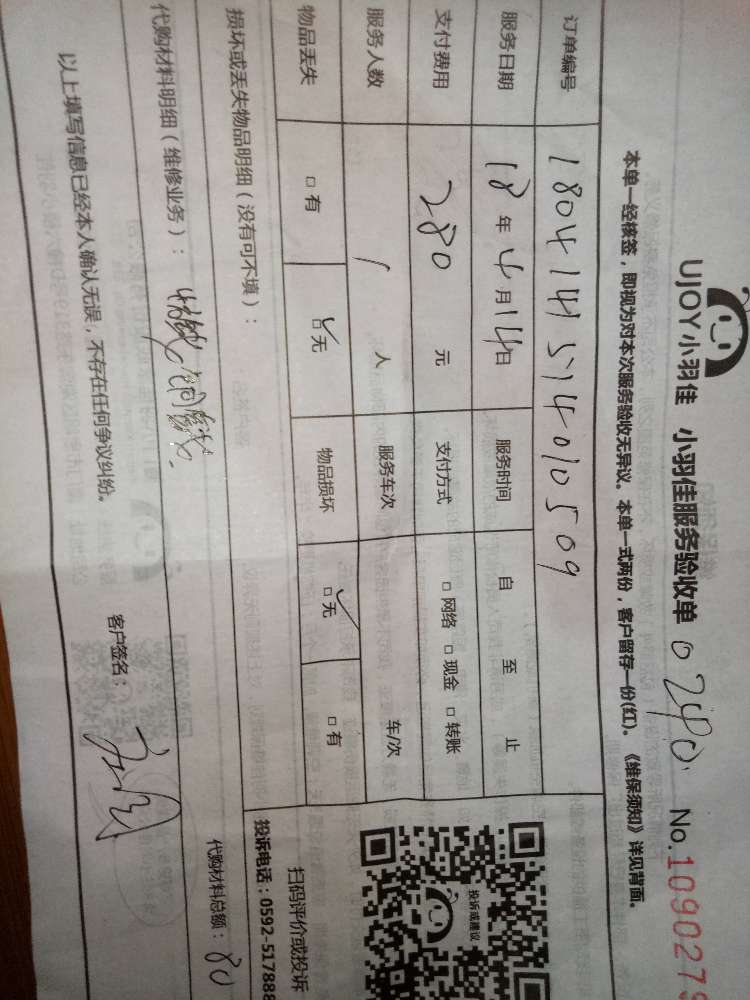 UJOY小羽佳 小羽佳服务验收单 0240 No.1090279
本单一经核签，即视为对本次服务验收无异议。本单一式两份，客户留存一份(红)。《维保须知》详见背面。
订单编号 180414151401050​9
服务日期 18年4月14日 服务时间 自 至 止
支付费用 280 元 支付方式 □ 网络 □ 现金 □ 转账
服务人数 1 人 服务车次 车/次
物品丢失 □ 有 □ 无 物品损坏 □ 无 □ 有
损坏或丢失物品明细（没有可不填）：
代购材料明细（维修业务）： 代购材料总额：80
以上填写信息已经本人确认无误，不存在任何争议纠纷。 客户签名：
投诉或建议
扫码评价或投诉
投诉电话：0592-517888